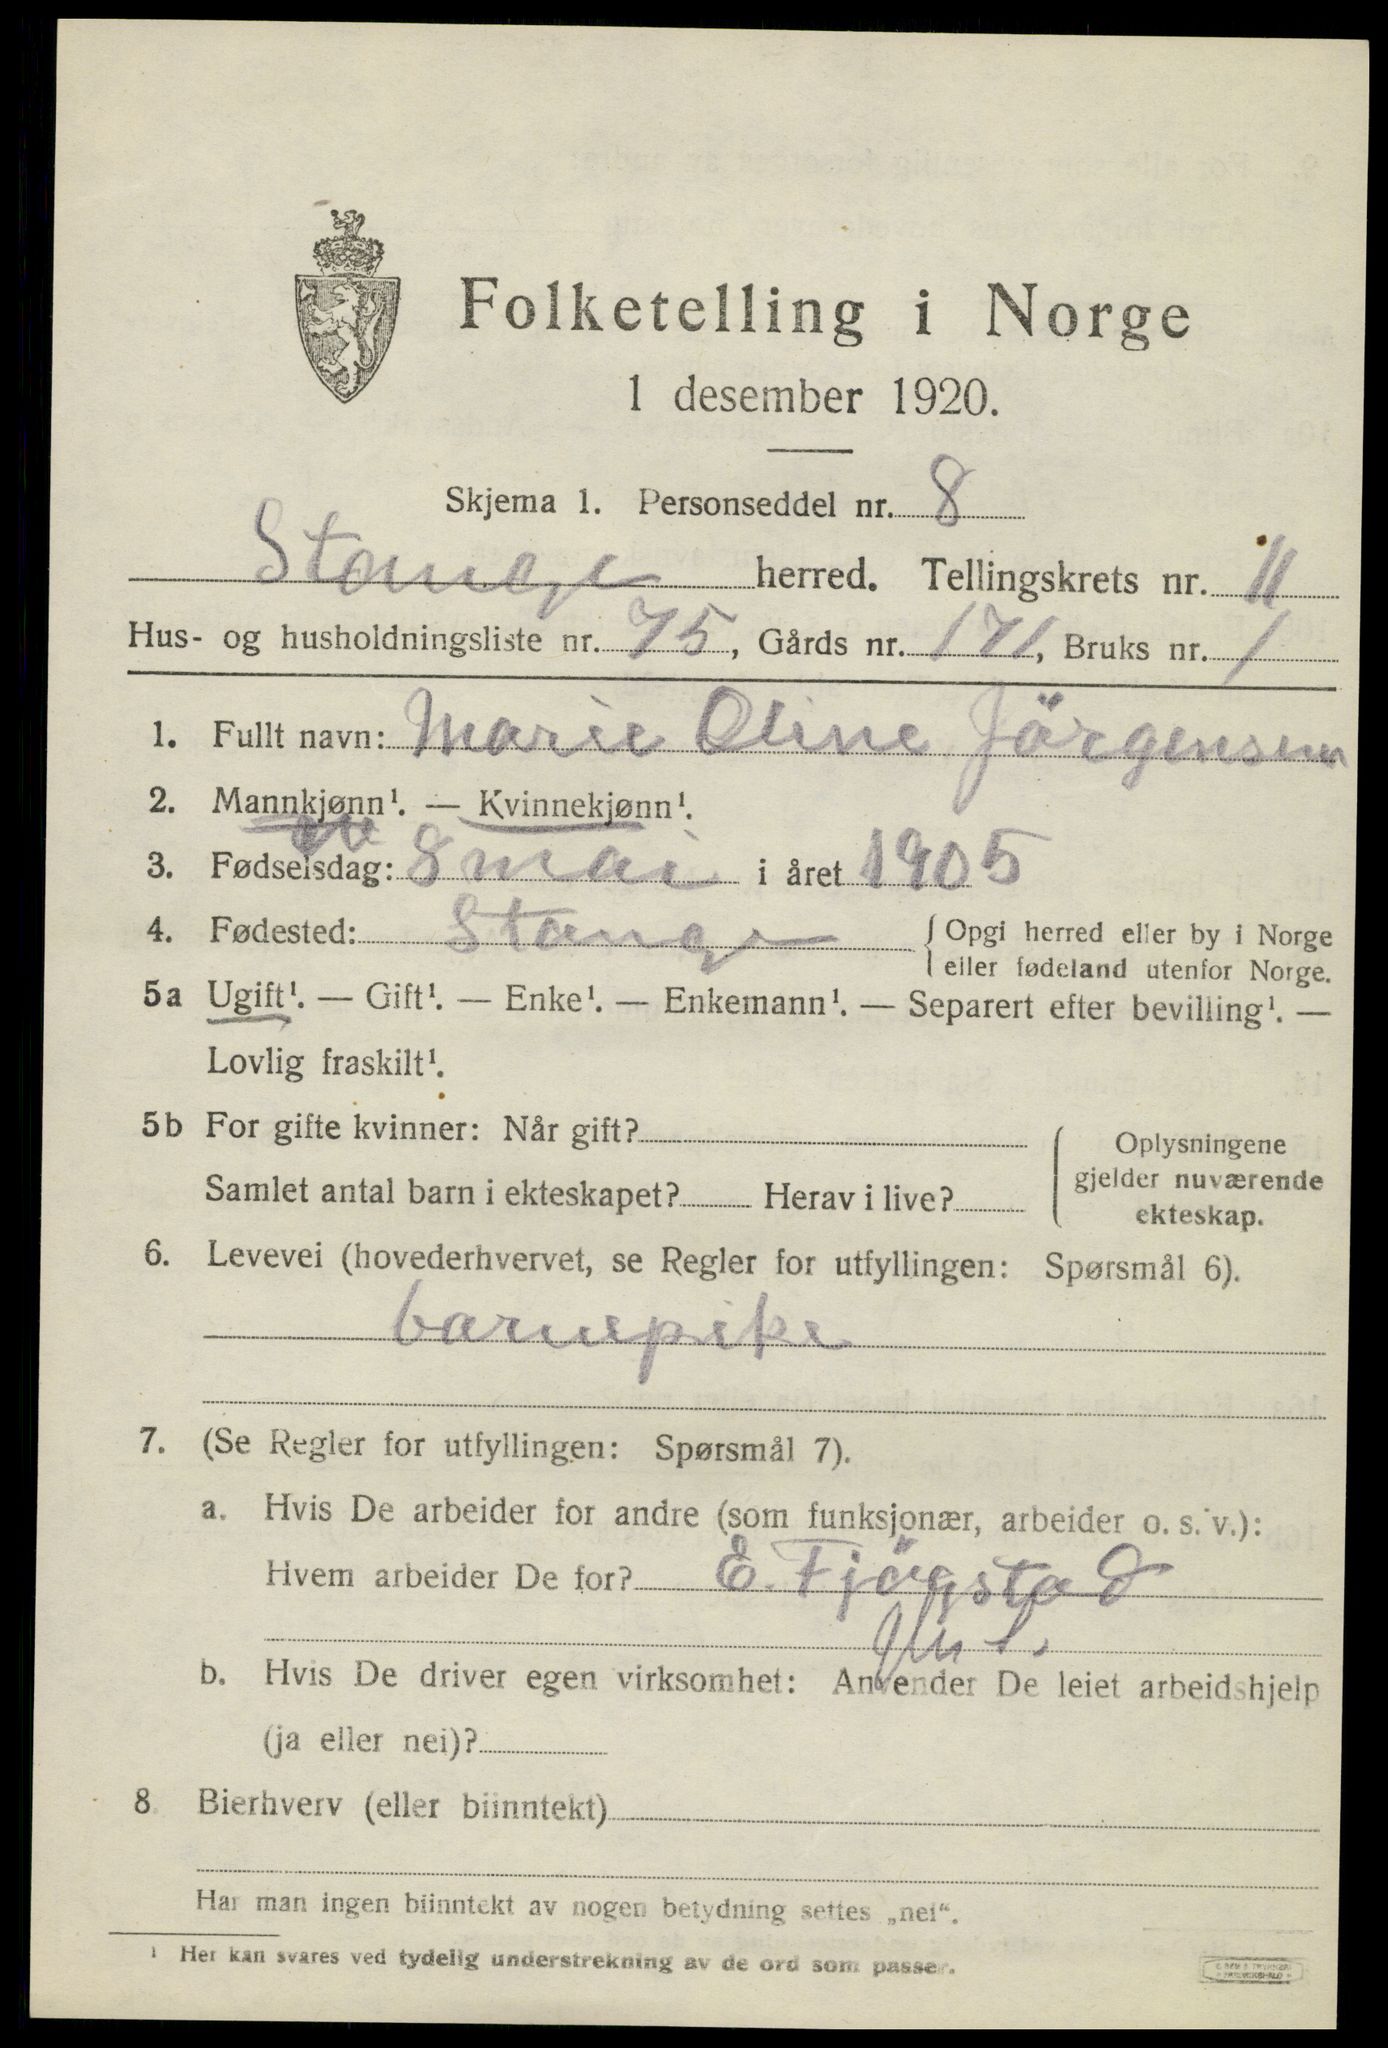 Folketelling i Norge
1 desember 1920.
Skjema 1. Personseddel nr. 8
Stange herred. Tellingskrets nr. 11
Hus- og husholdningsliste nr. 75, Gårds nr. 171, Bruks nr. 1
1. Fullt navn: Marie Oline Jörgensen
2. Mannkjønn¹. — Kvinnekjønn¹.
3. Fødselsdag: 8 mai i året 1905
4. Fødested: Stange { Opgi herred eller by i Norge
eller fødeland utenfor Norge.
5a Ugift¹. — Gift¹. — Enke¹. — Enkemann¹. — Separert efter bevilling¹. —
Lovlig fraskilt¹.
5b For gifte kvinner: Når gift?
Samlet antal barn i ekteskapet? Herav i live?
Oplysningene
gjelder nuværende
ekteskap.
6. Levevei (hovederhvervet, se Regler for utfyllingen: Spørsmål 6).
barnepike
7. (Se Regler for utfyllingen: Spørsmål 7).
a. Hvis De arbeider for andre (som funksjonær, arbeider o. s. v.):
Hvem arbeider De for? E. Fjögstad
b. Hvis De driver egen virksomhet: Anvender De leiet arbeidshjelp
(ja eller nei)?
8. Bierhverv (eller biinntekt)
Har man ingen biinntekt av nogen betydning settes „nei“.
¹ Her kan svares ved tydelig understrekning av de ord som passer.